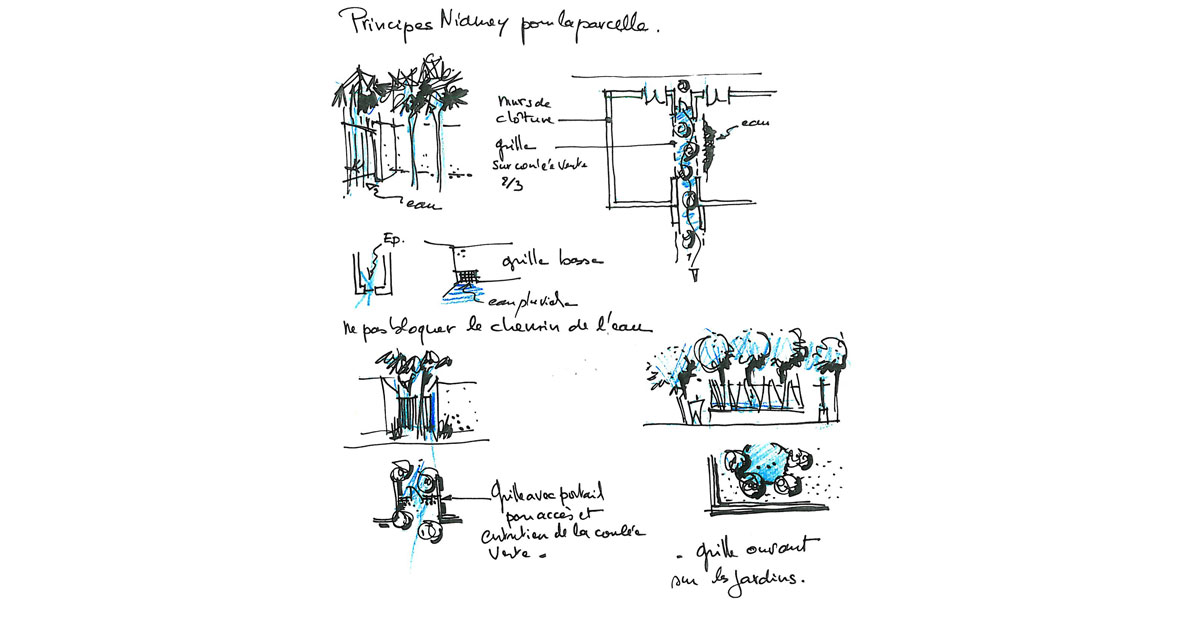 Principes Nidmey pour la parcelle.
murs de
clôture
eau
grille
sur coulée verte
2/3
eau
Ep.
grille basse
eau pluviale
ne pas bloquer le chemin de l'eau
Grille avec portail
pour accès et
entretien de la coulée
verte.
- Grille ouvrant
sur les Jardins.